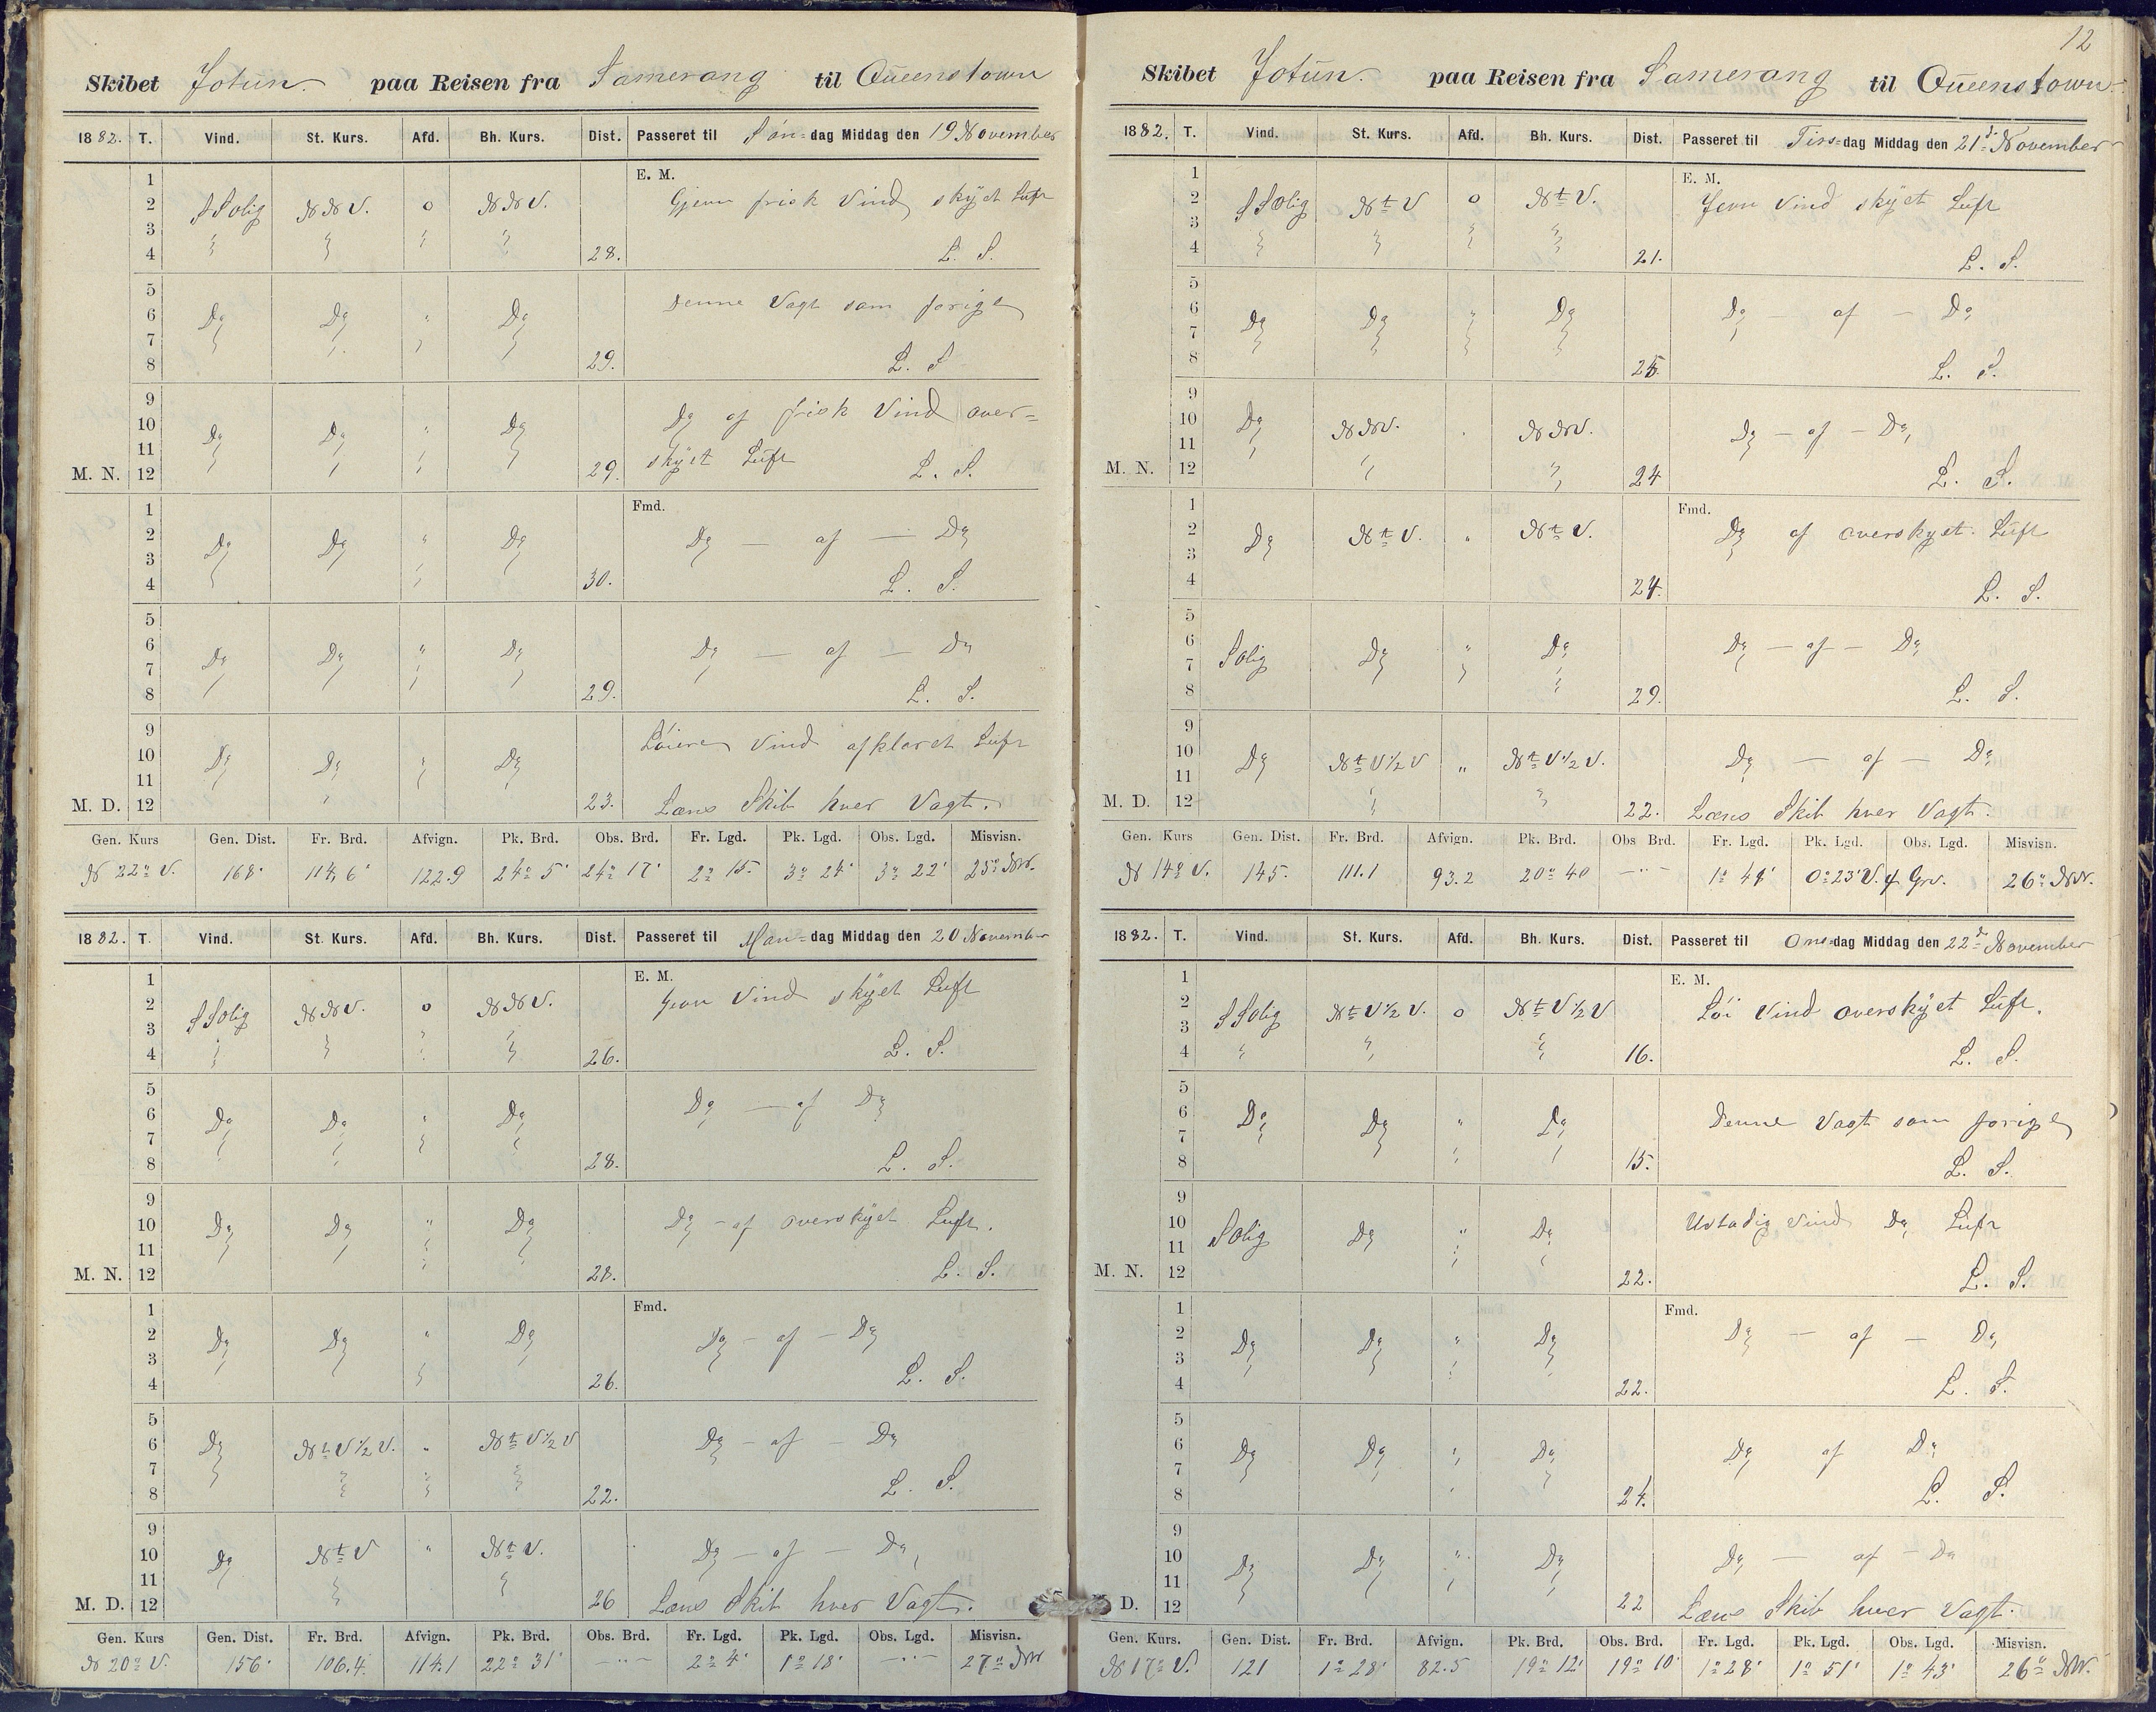 12
Skibet Jotun. paa Reisen fra Samerang til Queenstown
1882. T. Vind. St. Kurs. Afd. Bh. Kurs. Dist. Passeret til Søn-dag Middag den 19 November
E. M.
1
2 SSolig NNV. o NNV. Gjevn frisk Vind skyet Luft
3
4 28. L. S.
5
6 Do Do " Do Denne Vagt som forige
7
8 29. L. S
9
10 Do Do " Do Do af frisk Vind over-
11 skyet Luft
M. N. 12 29. L. S.
Fmd.
1
2 Do Do " Do Do — af — Do
3
4 30. L. S.
5
6 Do Do " Do Do — af — Do
7
8 29. L. S.
9
10 Do Do " Do Løiere Vind afklaret Luft
11
M. D. 12 23. Læns Skib hver Vagt.
Gen. Kurs Gen. Dist. Fr. Brd. Afvign. Pk. Brd. Obs. Brd. Fr. Lgd. Pk. Lgd. Obs. Lgd. Misvisn.
N 22° V. 168' 114,6' 122.9 24° 5' 24° 17' 2° 15' 3° 24' 3° 22' 25° NW.
1882. T. Vind. St. Kurs. Afd. Bh. Kurs. Dist. Passeret til Man-dag Middag den 20 November
E. M.
1
2 SSolig NNV. o NNV. Jevn Vind skyet Luft
3
4 26. L. S.
5
6 Do Do " Do Do — af Do
7
8 28. L. S.
9
10 Do Do " Do Do - af overskyet Luft.
11
M. N. 12 28. L. S.
Fmd.
1
2 Do Do " Do Do - af - Do
3
4 26. L. S.
5
6 Do NtV½V. " NtV½V Do - af - Do
7
8 22. L. S.
9
10 Do NtV " NtV. Do - af - Do
11
M. D. 12 26 Læns Skib hver Vagt.
Gen. Kurs Gen. Dist. Fr. Brd. Afvign. Pk. Brd. Obs. Brd. Fr. Lgd. Pk. Lgd. Obs. Lgd. Misvisn.
N 20° V. 156' 106.4' 114.1 22° 31' -"- 2° 4' 1° 18' -"- 27° NW
Skibet Jotun. paa Reisen fra Samerang til Queenstown
1882. T. Vind. St. Kurs. Afd. Bh. Kurs. Dist. Passeret til Tirs-dag Middag den 21d November
E. M.
1
2 SSolig NtV o NtV. Jevn Vind skyet Luft
3
4 21. L. S.
5
6 Do Do " Do Do — af — Do
7
8 25. L. S.
9
10 Do NNV. " NNV. Do — af — Do
11
M. N. 12 24 L. S.
Fmd.
1
2 Do NtV. " NtV. Do af overskyet Luft
3
4 24. L. S.
5
6 Solig Do " Do Do — af — Do
7
8 29. L. S.
9
10 Do NtV½V " NtV½V. Do — af — Do
11
M. D. 12 22. Læns Skib hver Vagt.
Gen. Kurs Gen. Dist. Fr. Brd. Afvign. Pk. Brd. Obs Brd. Fr. Lgd. Pk. Lgd. Obs. Lgd. Misvisn.
N 14° V. 145. 111.1 93.2 20° 40 -"- 1° 41' 0° 23' V. f Grv. 26° NW.
1882. T. Vind. St. Kurs. Afd. Bh. Kurs. Dist. Passeret til Ons-dag Middag den 22d November
E. M.
1
2 SSolig NtV½V. o NtV½V Løi Vind overskyet Luft.
3
4 16. L. S.
5
6 Do Do " Do Denne Vagt som forige
7
8 15. L. S.
9
10 Solig Do " Do Ustadig Vind Do Luft
11
M. N. 12 22. L. S.
Fmd.
1
2 Do Do " Do Do — af — Do
3
4 22. L. S.
5
6 Do Do " Do Do af Do
7
8 24. L. S.
9
10 Do Do " Do Do — af - Do
11
D. 12 22 Læns Skib hver Vagt.
Gen. Kurs. Gen. Dist. Fr. Brd. Afvign. Pk. Brd. Obs. Brd. Fr. Lgd. Pk. Lgd. Obs. Lgd. Misvisn.
N 17° V. 121 1° 28' 82.5 19° 12' 19° 10' 1° 28' 1° 51' 1° 43' 26° NW.